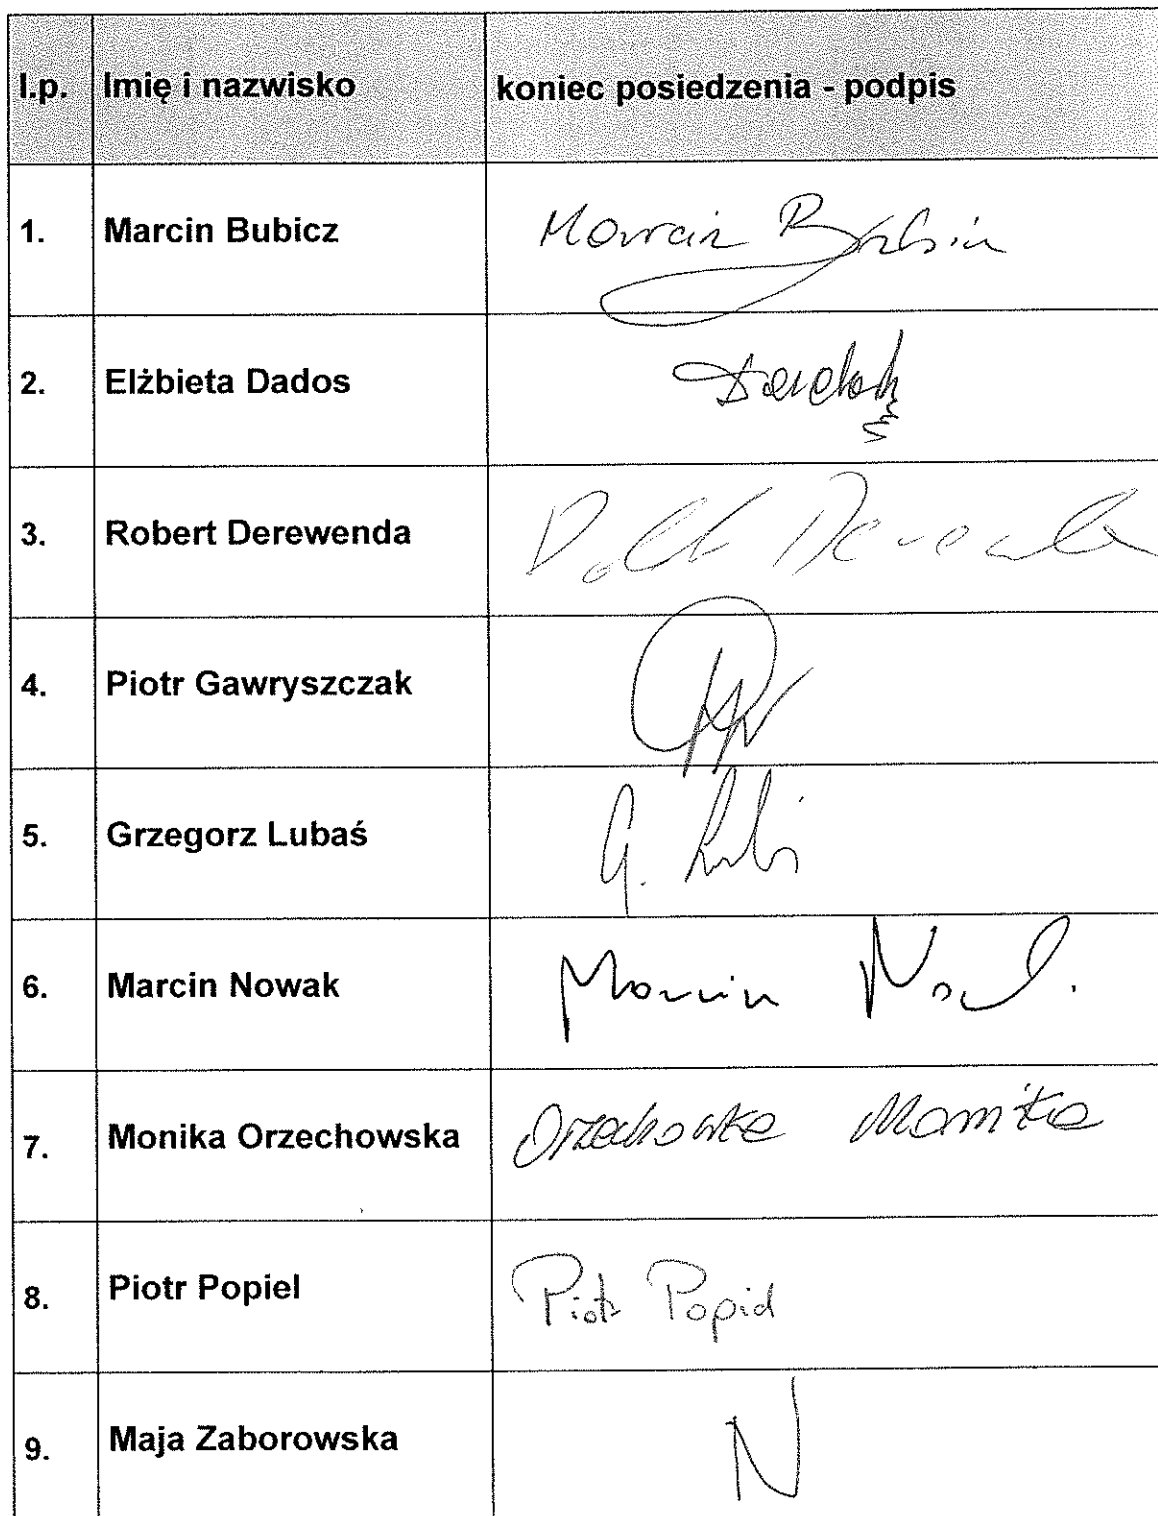 l.p. Imię i nazwisko koniec posiedzenia - podpis
1. Marcin Bubicz Marcin
2. Elżbieta Dados
3. Robert Derewenda
4. Piotr Gawryszczak
5. Grzegorz Lubaś G.
6. Marcin Nowak Marcin
7. Monika Orzechowska Orzechowska Monika
8. Piotr Popiel Piotr Popiel
9. Maja Zaborowska N